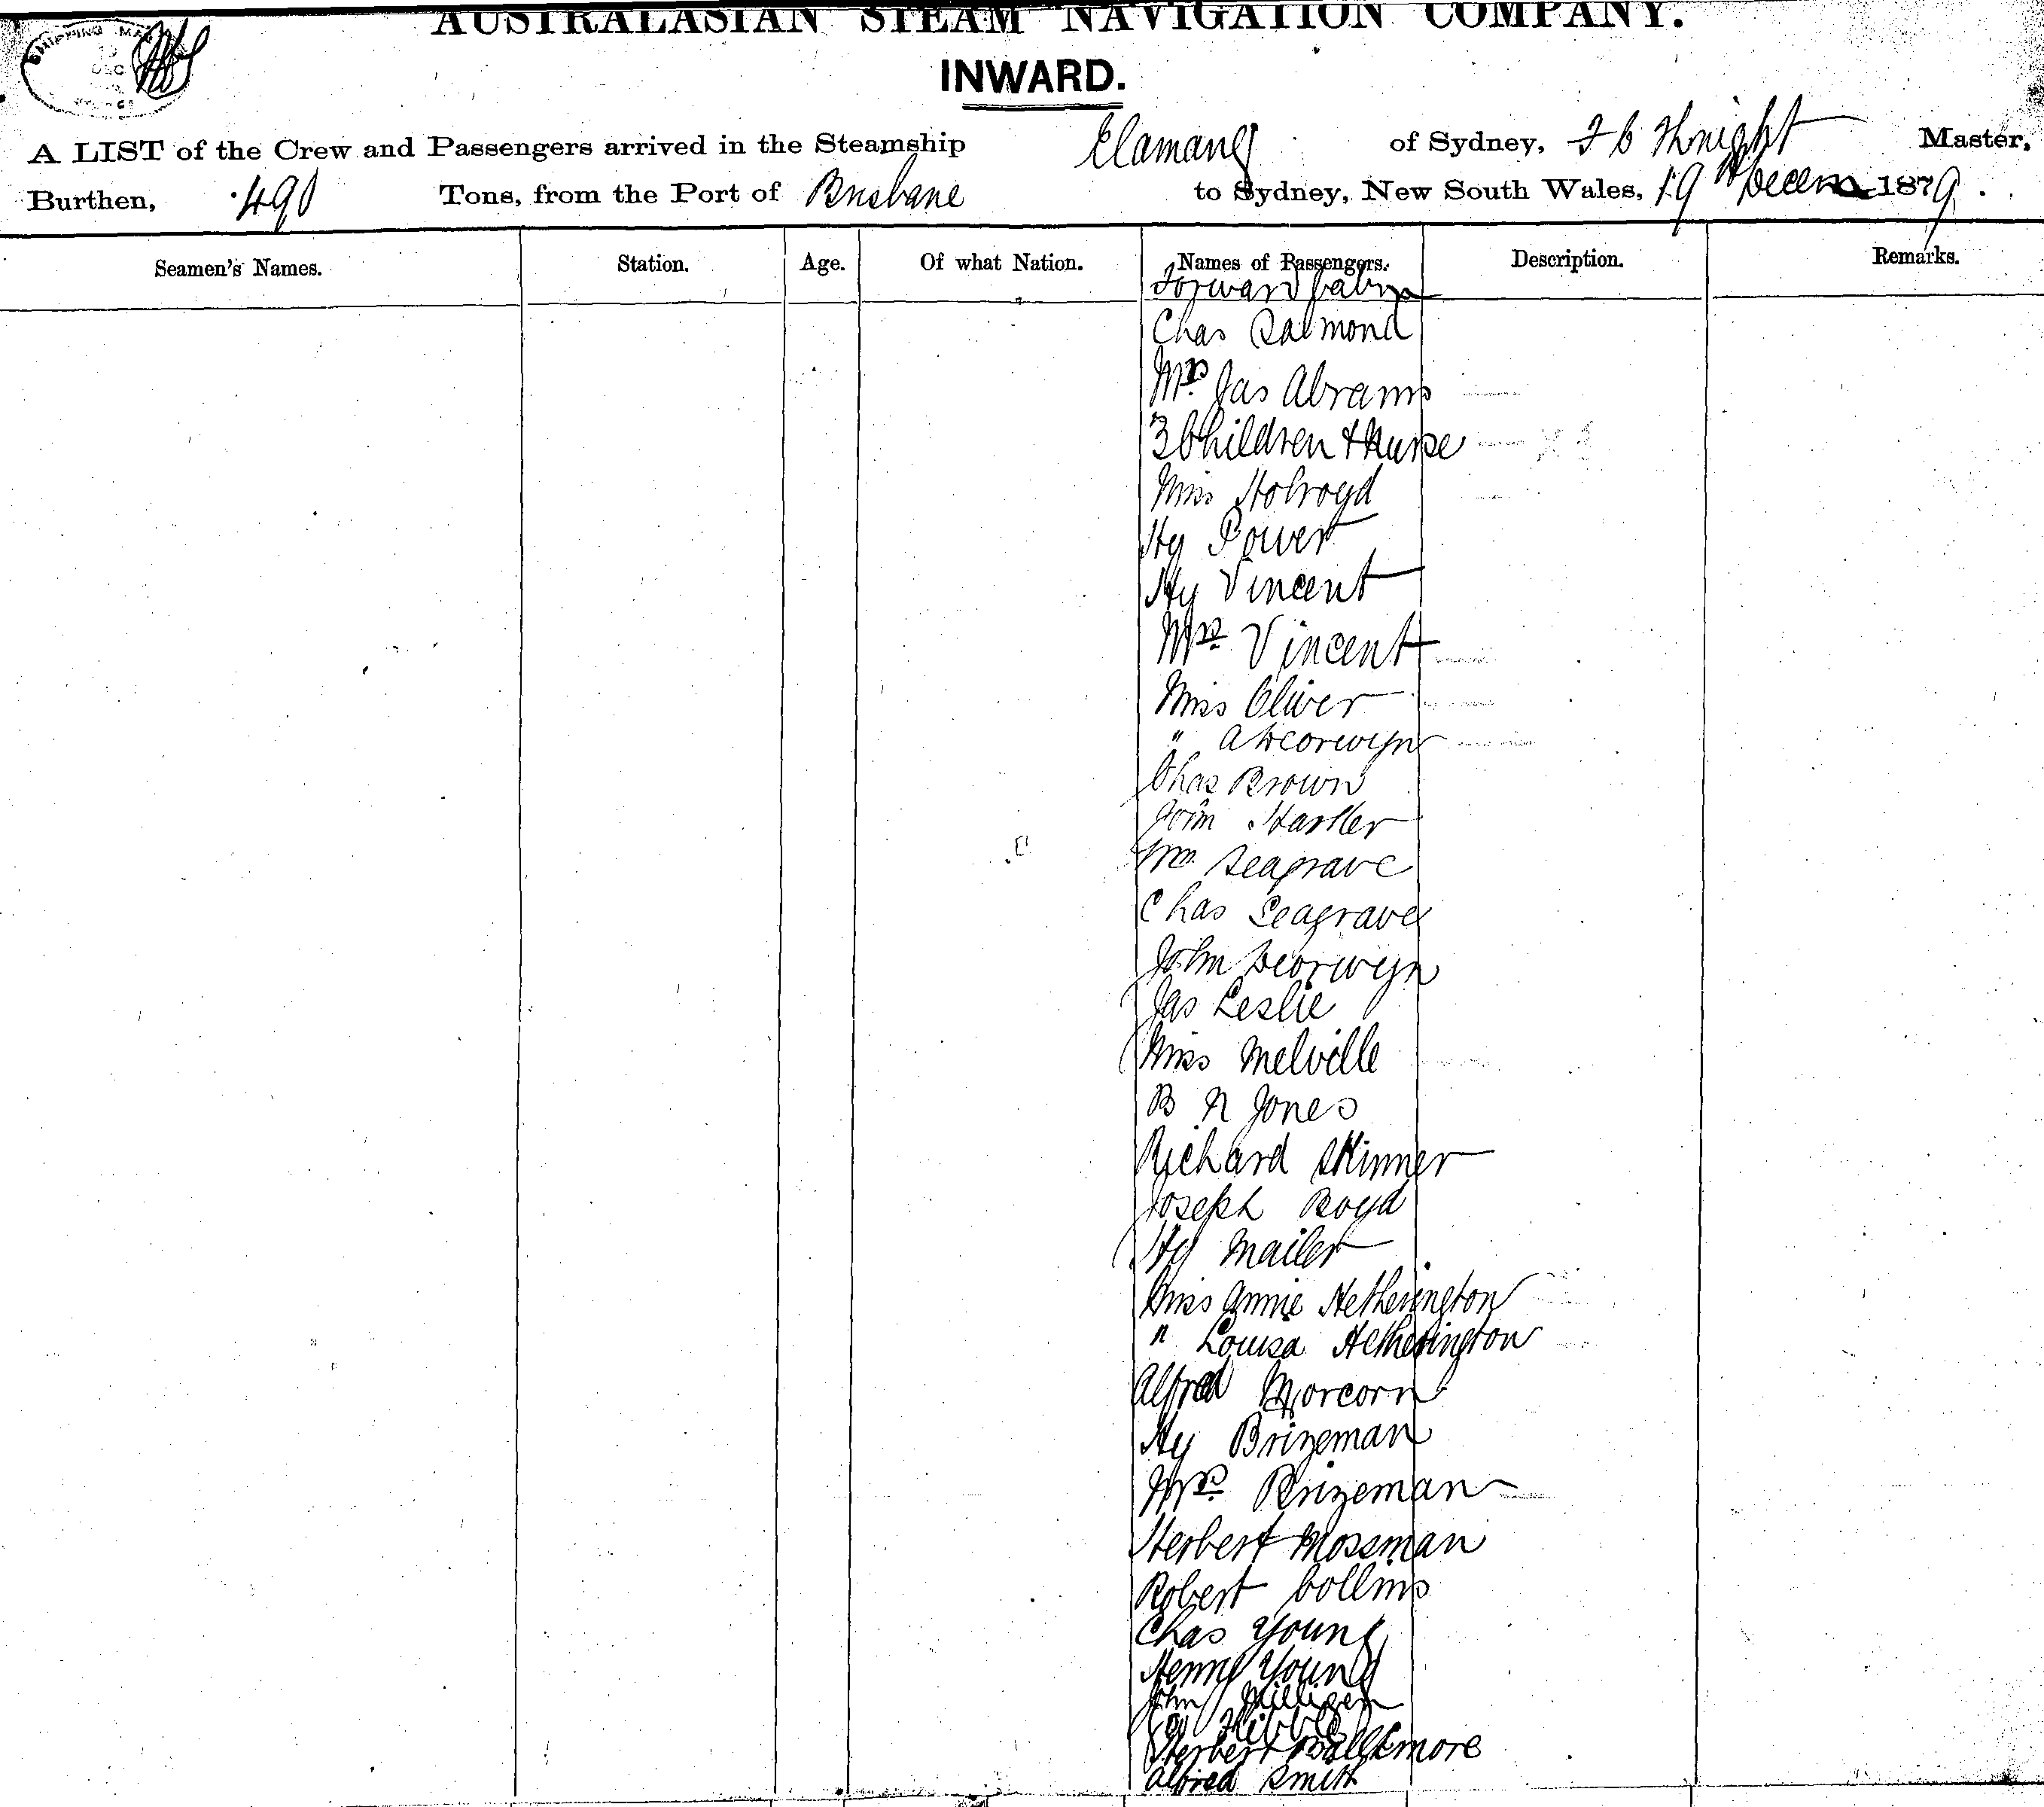 AUSTRALASIAN STEAM NAVIGATION COMPANY.
INWARD.
A LIST of the Crew and Passengers arrived in the Steamship Elamang of Sydney, Knight Master,
Burthen, 490 Tons, from the Port of Brisbane to Sydney, New South Wales, 19th Decem 1879.
Seamen's Names. Station. Age. Of what Nation. Names of Passengers. Description. Remarks.
Forward Cabin
Chas Salmond
Mrs Jas Abrams
3 Children & Nurse
Miss Holroyd
Hy Power
Hy Vincent
Mrs Vincent
Miss Oliver
"
Chas Brown
John
Wm Seagrave
Chas Seagrave
John
Jas Leslie
Miss Melville
B N Jones
Richard Skinner
Joseph Boyd
Hy Mailer
Miss Annie Hetherington
" Louisa Hetherington
Alfred Morcorn
Hy Brizeman
Mrs Brizeman
Herbert Mossman
Robert Collins
Chas Young
Henry Young
John Milligen
Herbert
Alfred Smith